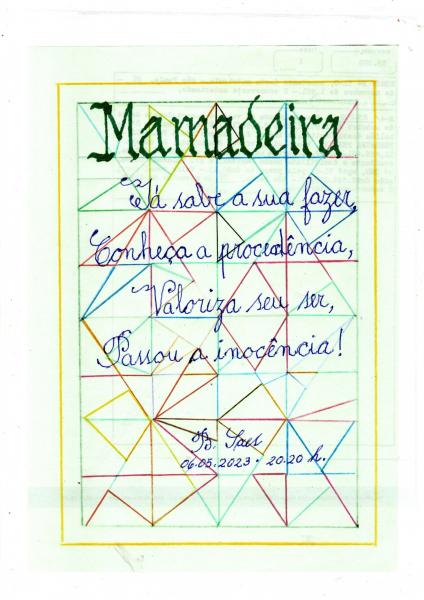 Mamadeira
Já sabe a sua fazer,
Conheça a procedência,
Valoriza seu ser,
Passou a inocência!
B. Saes
06.05.2023 - 20:20 h.